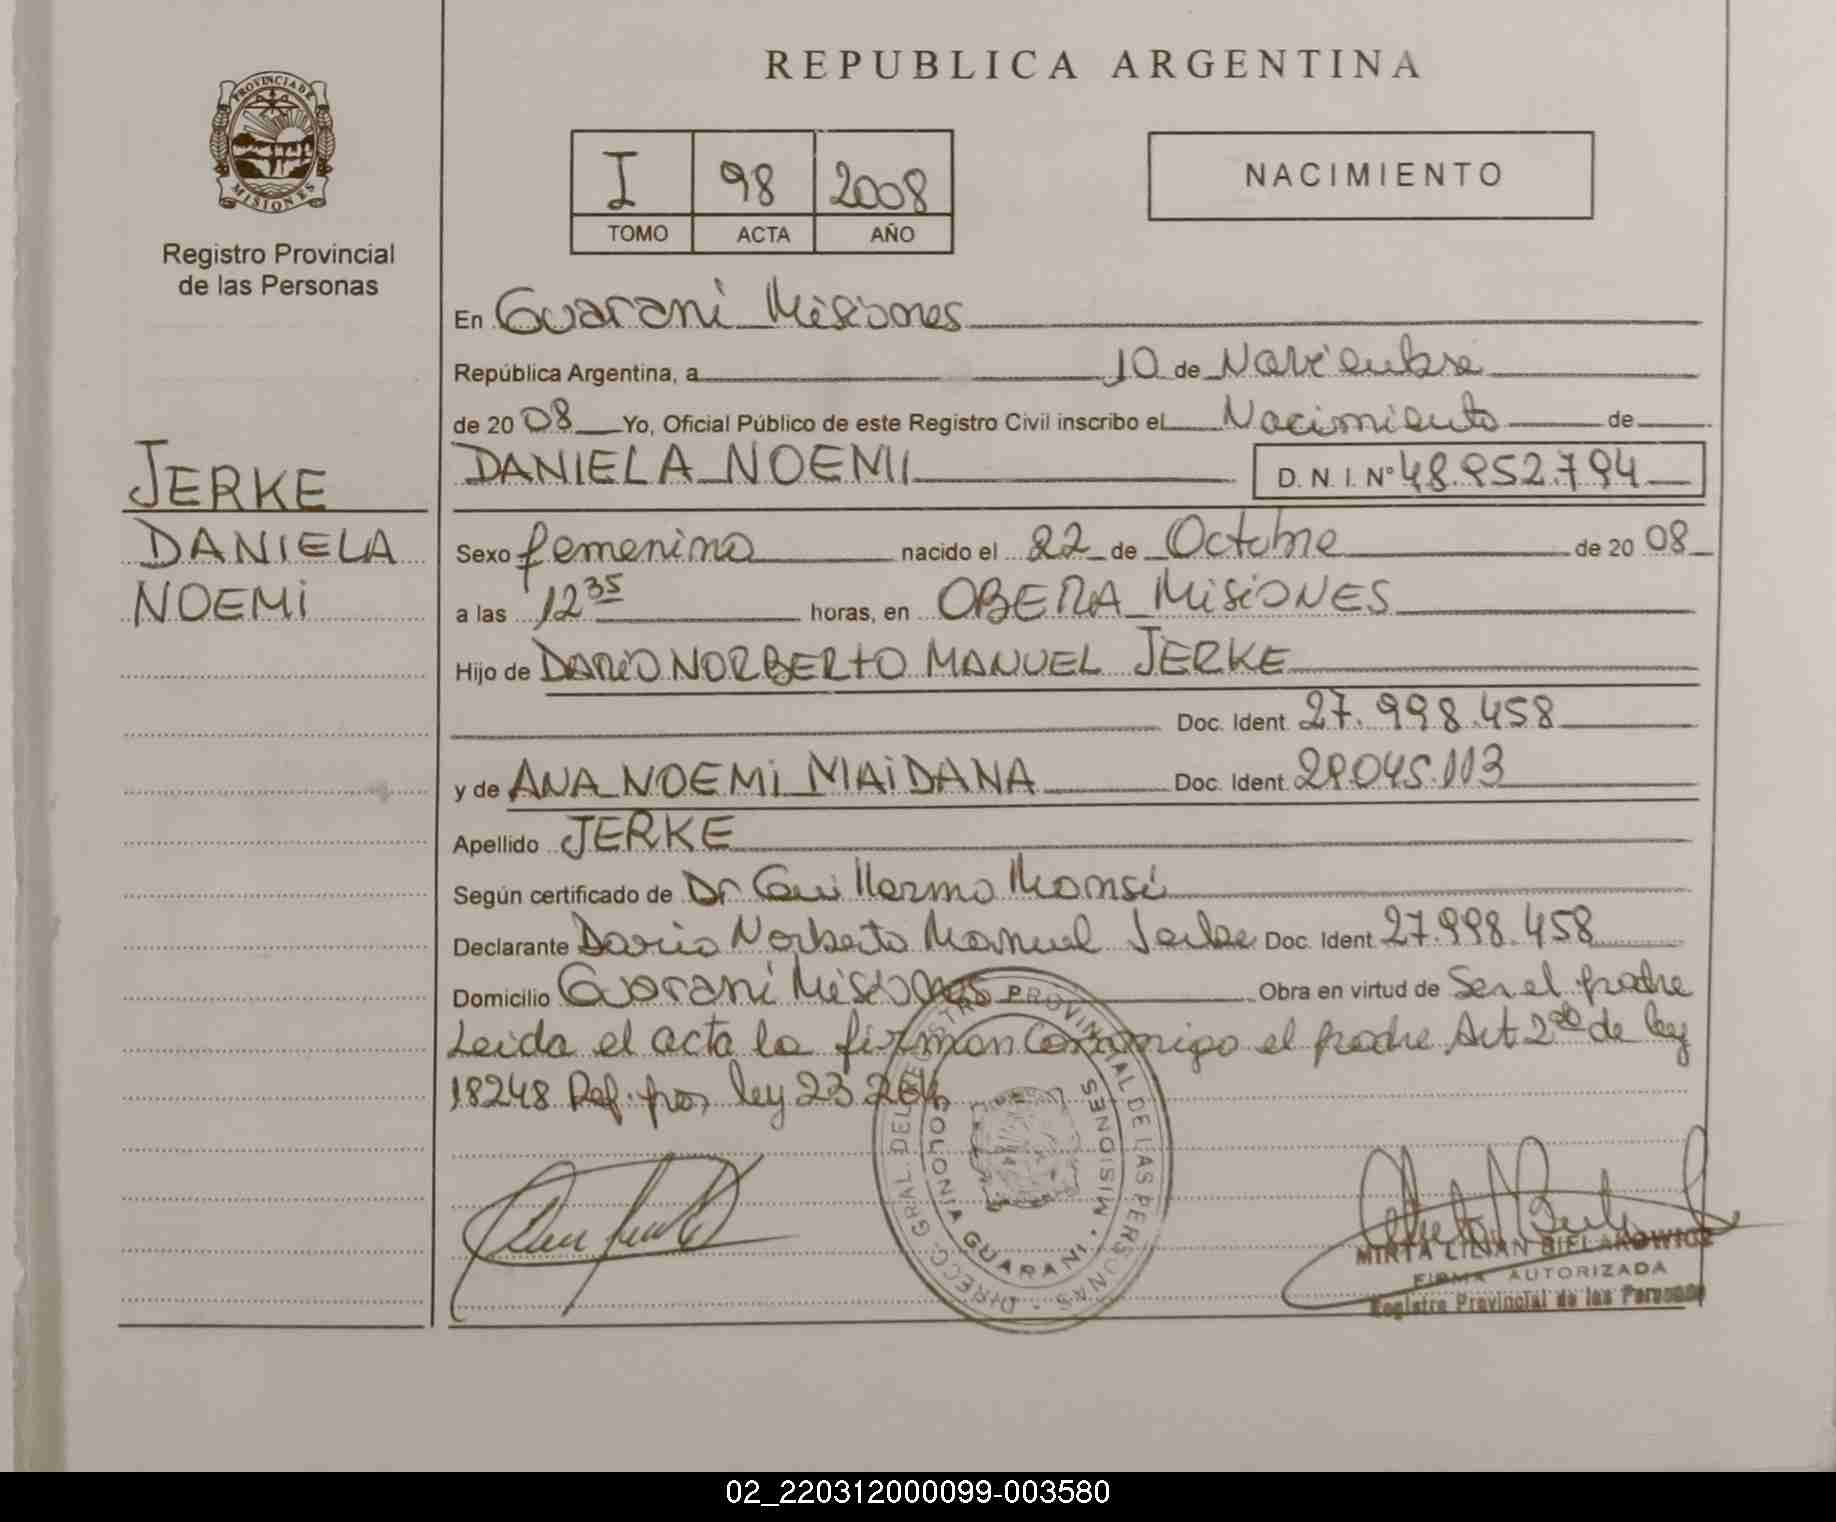 PROVINCIA DE
MISIONES
Registro Provincial
de las Personas
JERKE
DANIELA
NOEMI
REPUBLICA ARGENTINA
I 98 2008
TOMO ACTA AÑO
NACIMIENTO
En Guarani Misiones
República Argentina, a 10 de Noviembre
de 20 08 Yo, Oficial Público de este Registro Civil inscribo el Nacimiento de
DANIELA NOEMI D.N.I. Nº 48.952.794
Sexo femenino nacido el 22 de Octubre de 20 08
a las 12 35 horas, en OBERA MISIONES
Hijo de DARIO NORBERTO MANUEL JERKE
Doc. Ident. 27.998.458
y de ANA NOEMI MAIDANA Doc. Ident. 29.045.113
Apellido JERKE
Según certificado de Dr Guillermo
Declarante Dario Norberto Manuel Jerke Doc. Ident. 27.998.458
Domicilio Guarani Misiones Obra en virtud de Ser el padre
Leida el acta la firman Conmigo el padre Art 2do de ley
18248 Ref. por ley 23.264
DIRECC. GRAL DEL REGISTRO PROVINCIAL DE LAS PERSONAS
COLONIA GUARANI - MISIONES
MIRTA LILIAN BIELAKOWICZ
FIRMA AUTORIZADA
Registro Provincial de las Personas
02_220312000099-003580